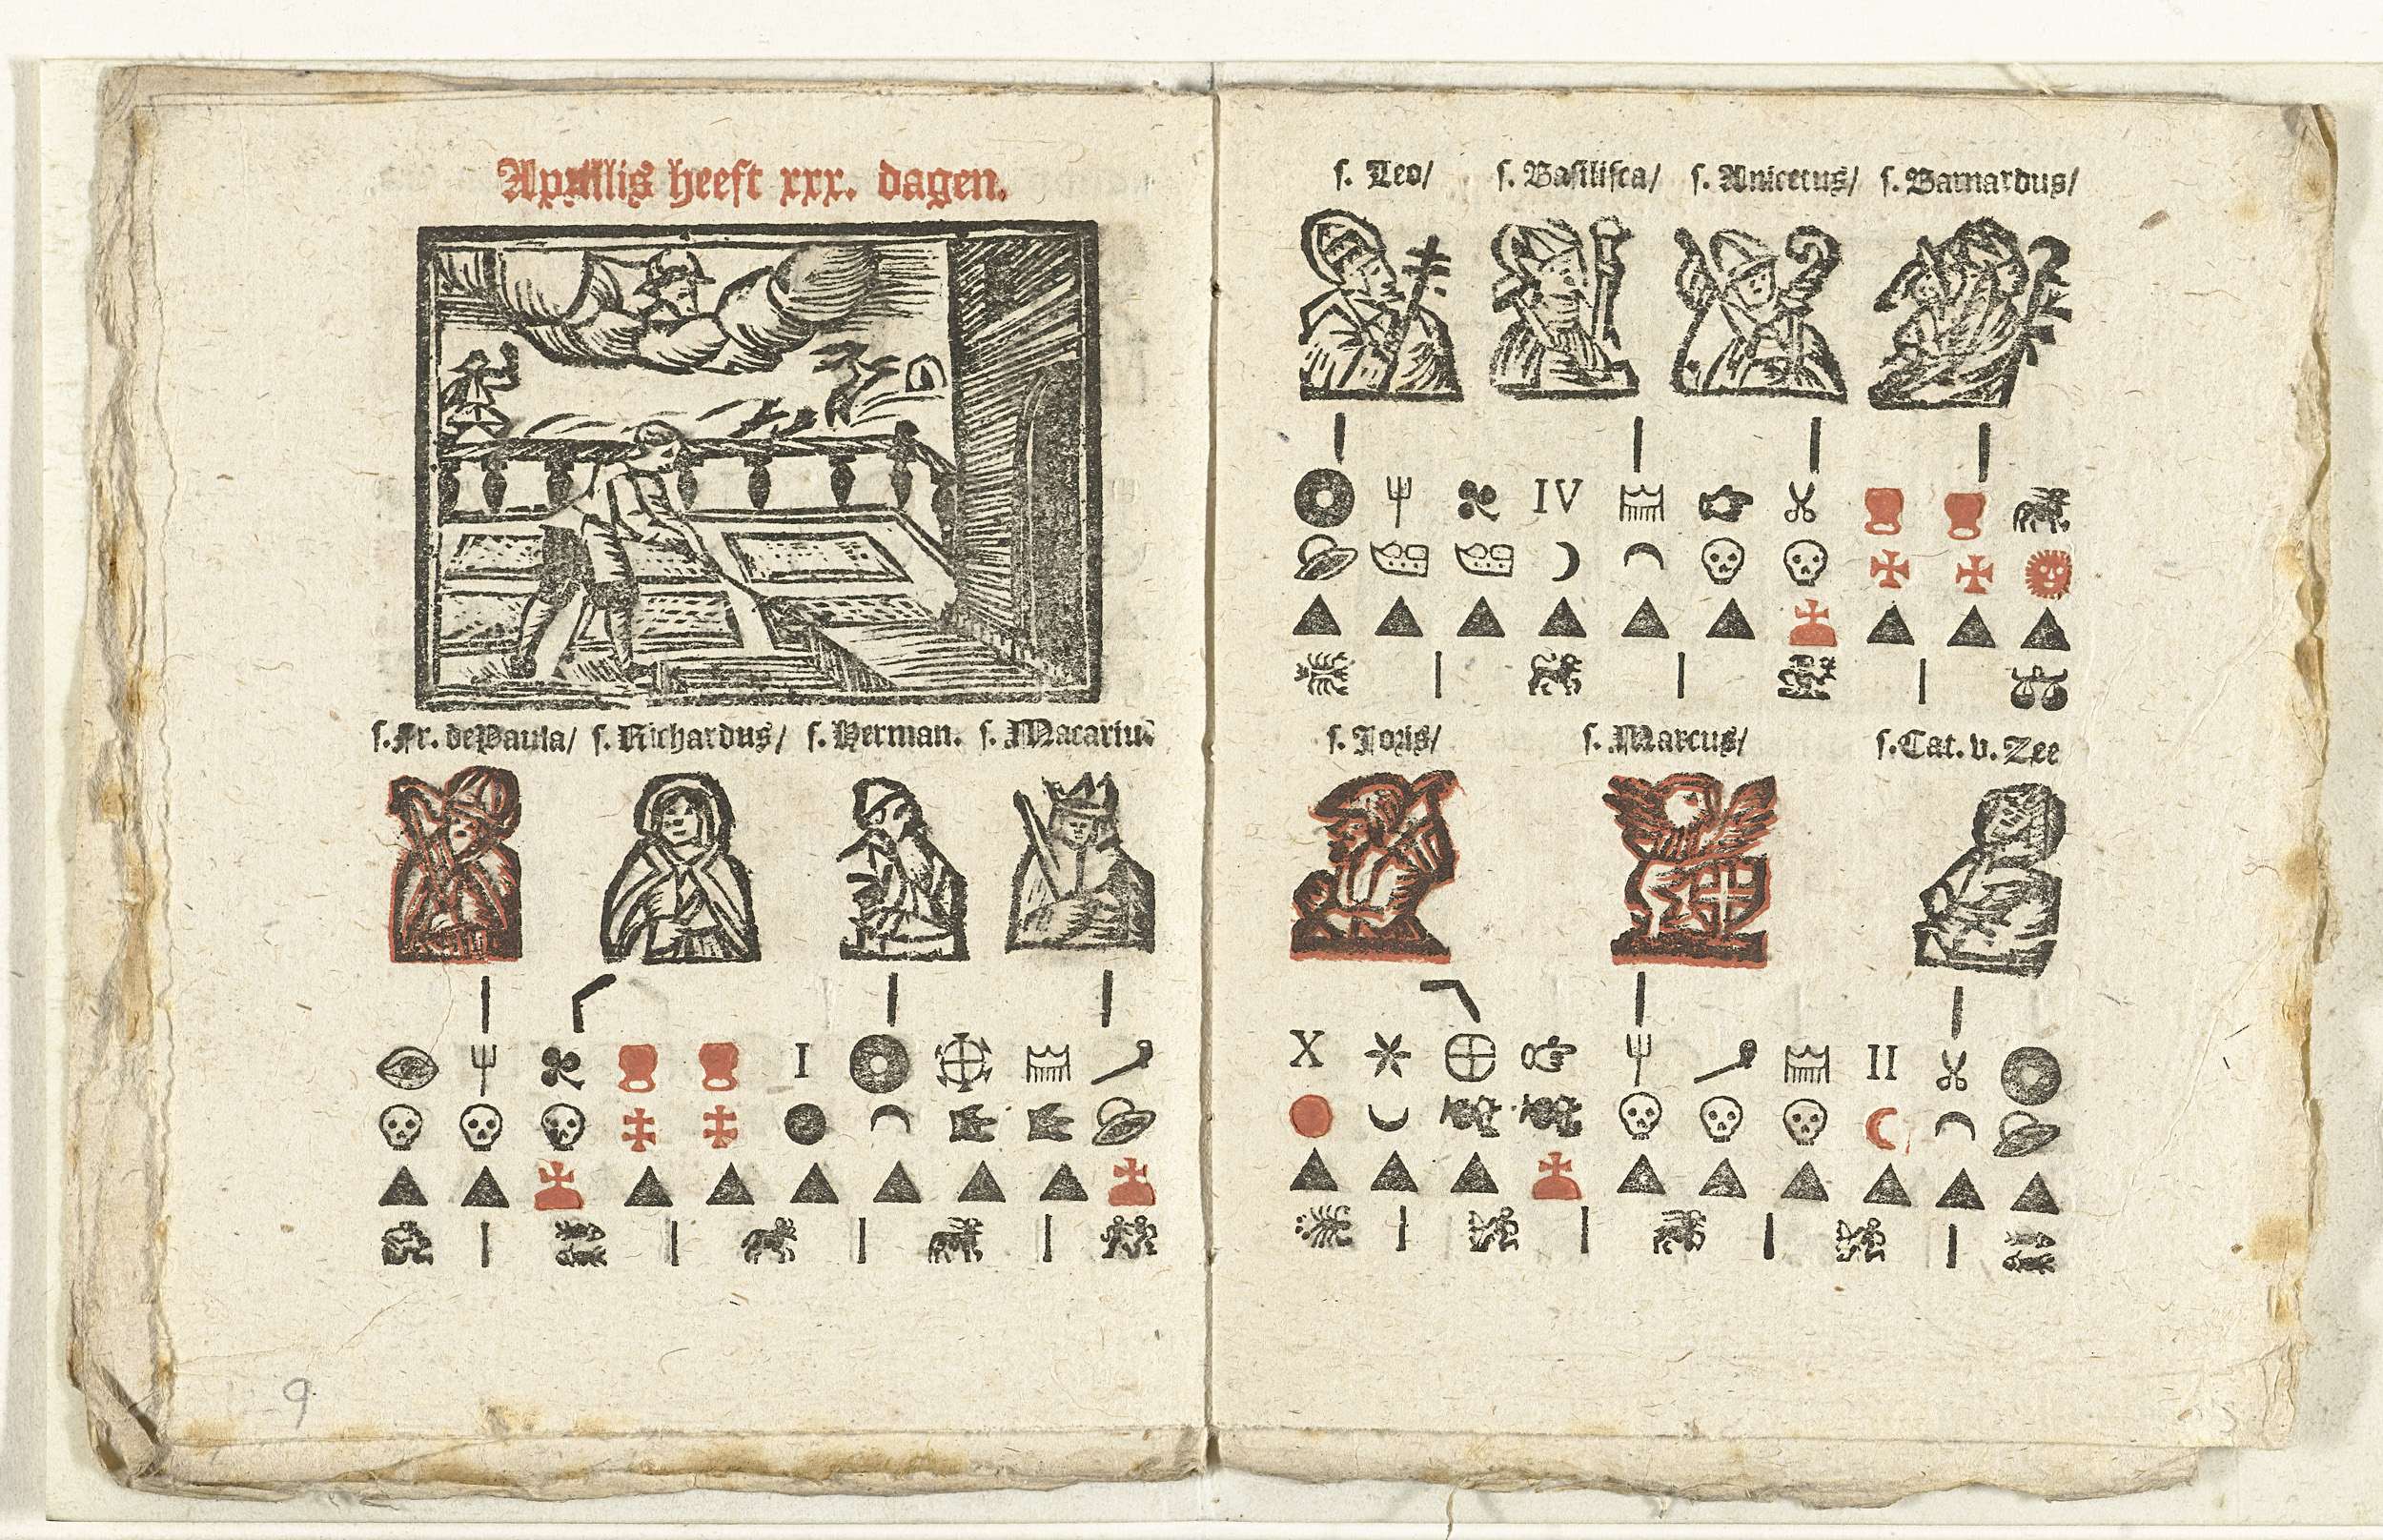 Aprillis heeft xxx. dagen.
s. Fr. de Paula/ s. Richardus/ s. Herman. s. Macarius
I
9
s. Leo/ s. Basilisca/ s. Anicetus/ s. Barnardus/
IV
s. Joris/ s. Marcus/ s. Cat. v. Zee
X II